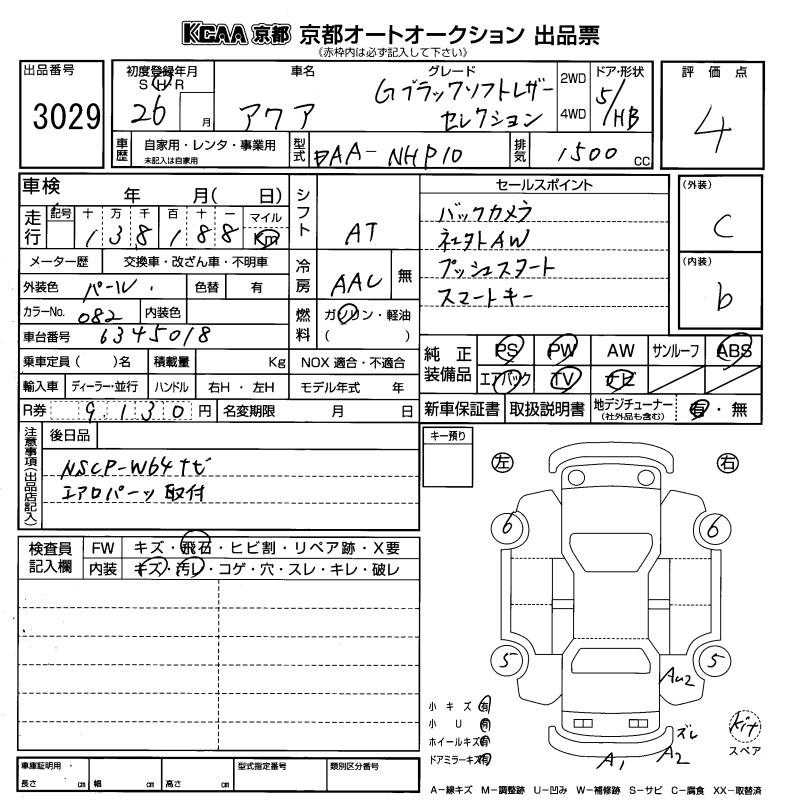 KCAA 京都 京都オートオークション 出品票
《赤枠内は必ず記入して下さい》
出品番号 3029
初度登録年月 S H R 26 月
車名 アクア
グレード Gブラックソフトレザーセレクション
2WD 4WD
ドア・形状 5/HB
評価点 4
車歴 自家用・レンタ・事業用 未記入は自家用
型式 DAA-NHP10
排気 1500 CC
車検 年 月( 日)
走行 記号 十 万 千 百 十 一 マイル
1 3 8 1 8 8 Km
シフト AT
メーター歴 交換車・改ざん車・不明車
冷房 AAC 無
外装色 パール 色替 有
カラーNo. 082 内装色
燃料 ガソリン・軽油 ( )
車台番号 6345018
乗車定員( )名 積載量 Kg NOX 適合・不適合
輸入車 ディーラー・並行 ハンドル 右H・左H モデル年式 年
R券 9,130円 名変期限 月 日
セールスポイント
バックカメラ
社外AW
プッシュスタート
スマートキー
(外装) C
(内装) b
純正装備品 PS PW AW サンルーフ ABS
エアバック TV ナビ
新車保証書 取扱説明書 地デジチューナー(社外品も含む) 有・無
注意事項(出品店記入) 後日品
NSCP-W64ナビ
エアロパーツ取付
キー預り
左 右
6 6
5 5
検査員記入欄 FW キズ・飛石・ヒビ割・リペア跡・X要
内装 キズ・汚レ・コゲ・穴・スレ・キレ・破レ
AU2
小キズ 有
小U 有
ホイールキズ 有
ドアミラーキズ 有
ズレ
A1 A2
kit
スペア
車庫証明用 長さ cm 幅 cm 高さ cm
型式指定番号 類別区分番号
A−線キズ M−調整跡 U−凹み W−補修跡 S−サビ C−腐食 XX−取替済